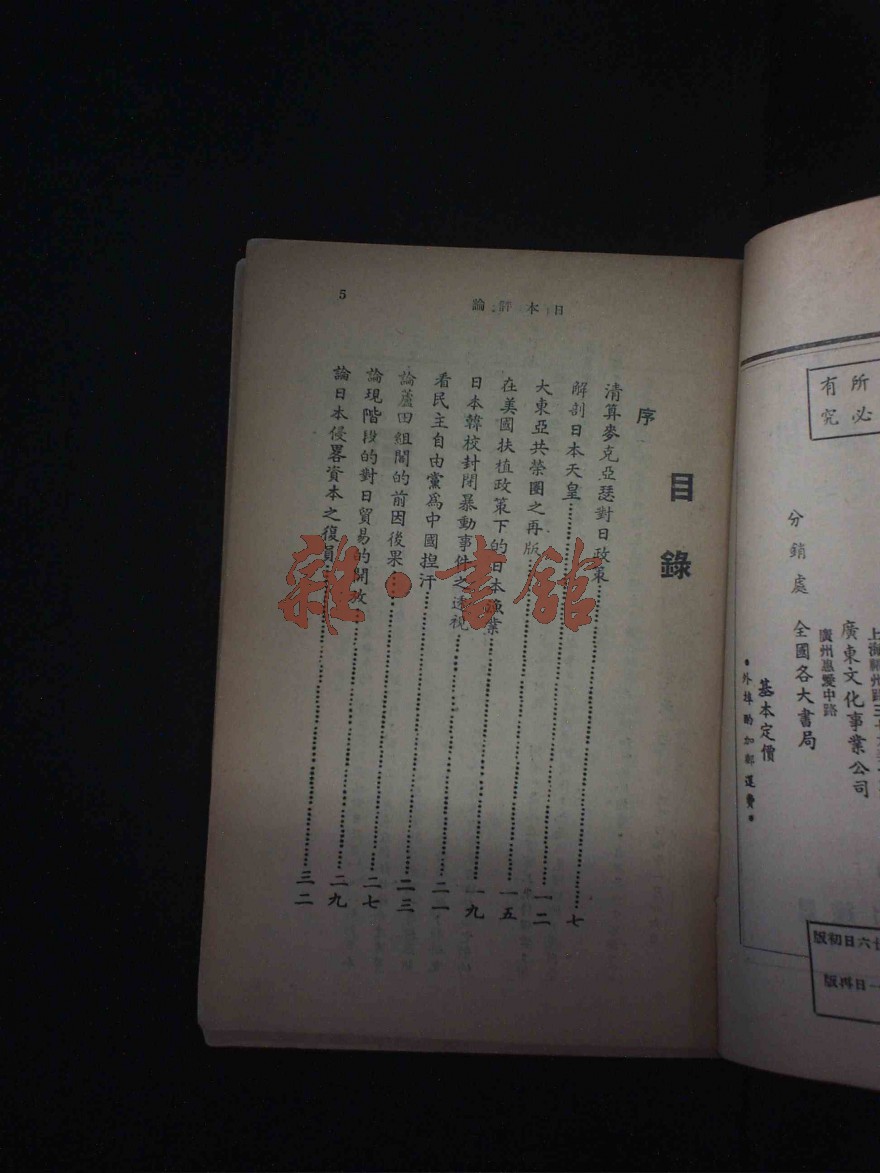 所必
有究
廣東文化事業公司
廣州惠愛中路
分銷處 全國各大書局
基本定價
•外埠酌加郵運費•
六日初版
一日再版
日本評論
5
目錄
序
清算麥克亞瑟對日政策……七
解剖日本天皇……一二
大東亞共榮圈之再版……一五
在美國扶植政策下的日本漁業……一九
日本韓校封閉暴動事件之透視……二一
看民主自由黨爲中國揑汗……二三
論蘆田組閣的前因後果……二七
論現階段的對日貿易的開放……二九
論日本侵畧資本之復員……三二
雜•書館